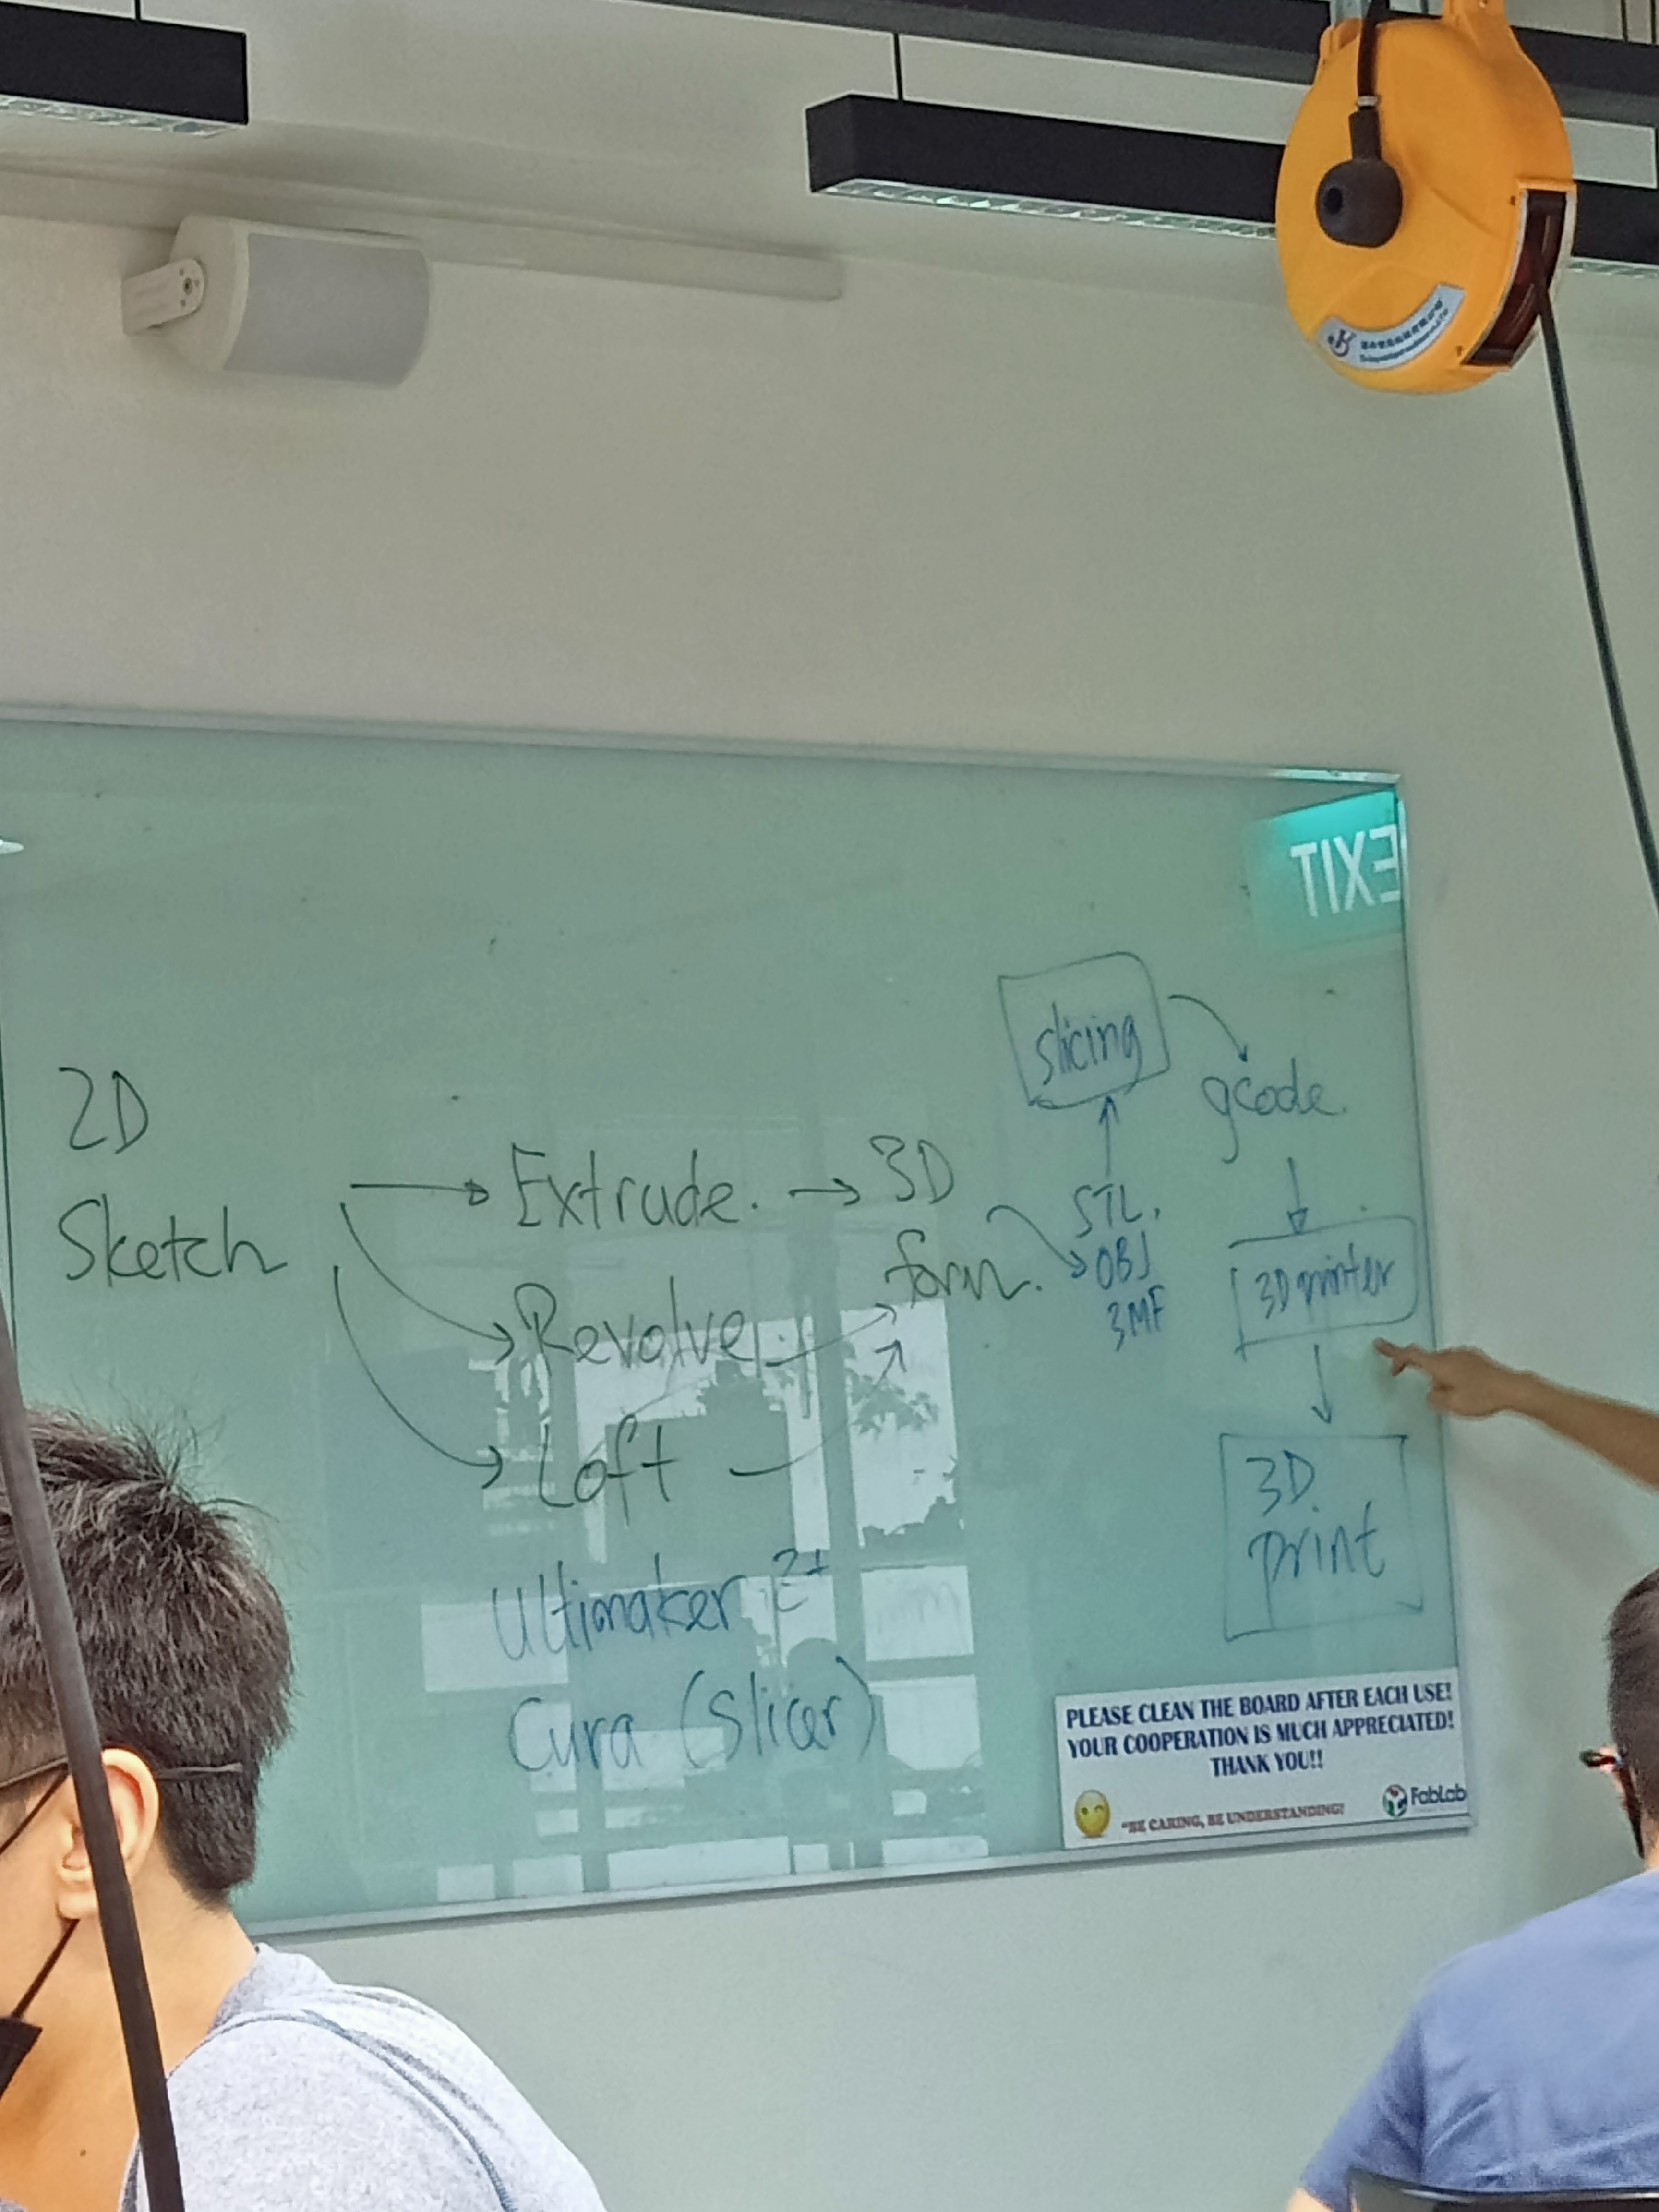 EXIT
2D
Sketch
Extrude.
Revolve
Loft
3D
form.
STL.
OBJ
3MF
slicing
gcode.
3D printer
3D.
print
Ultimaker 2+
Cura (Slicer)
PLEASE CLEAN THE BOARD AFTER EACH USE!
YOUR COOPERATION IS MUCH APPRECIATED!
THANK YOU!!
"BE CARING, BE UNDERSTANDING!
FabLab